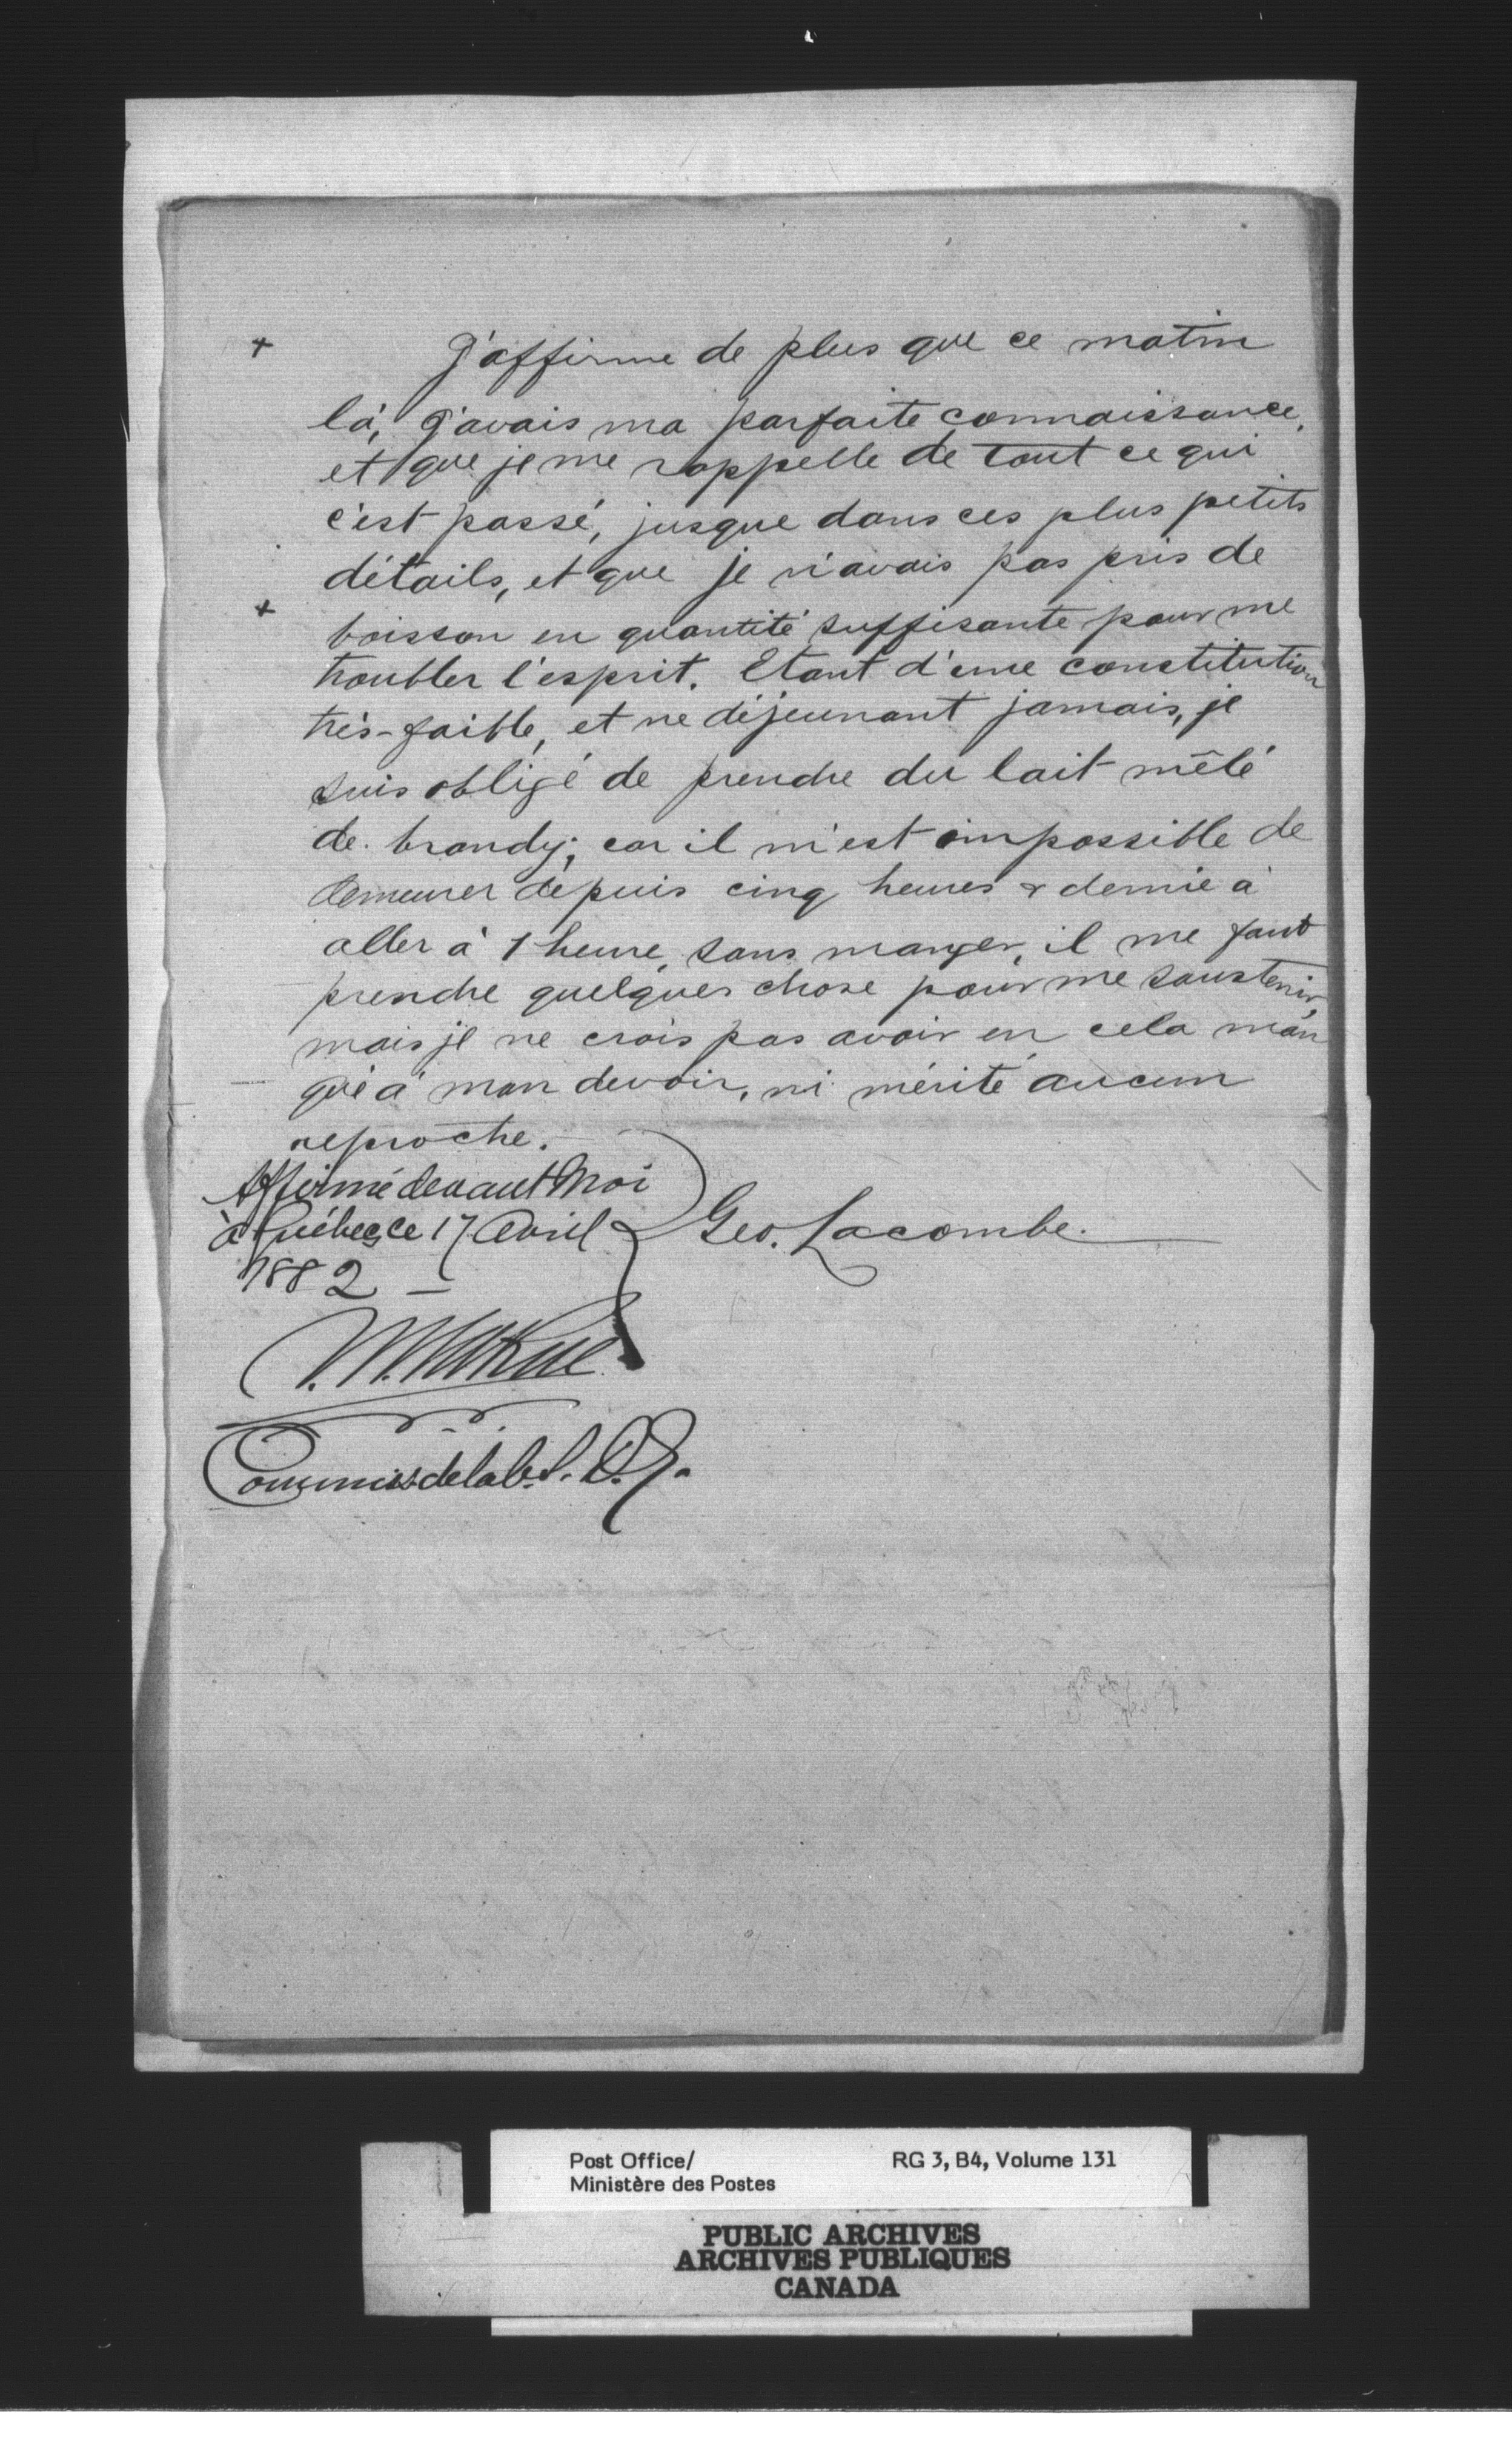 + J'affirme de plus que ce matin
là, j'avais ma parfaite connaissance,
et que je me rappelle de tout ce qui
c'est passé, jusque dans ces plus petits
détails, et que je n'avais pas pris de
+ boisson en quantité suffisante pour me
troubler l'esprit. Etant d'une constitution
très-faible, et ne déjeunant jamais, je
suis obligé de prendre du lait mêlé
de brandy; car il m'est impossible de
demeurer depuis cinq heures & demie à
aller à 1 heure, sans manger, il me faut
prendre quelques chose pour me soustenir,
mais je ne crois pas avoir en cela man
qué à mon devoir, ni mérité aucun
reproche.
Affirmé devant Moi
à Québec, ce 17 Avril
1882 —
Geo. Lacombe.
Commiss de la
Post Office/
Ministère des Postes
RG 3, B4, Volume 131
PUBLIC ARCHIVES
ARCHIVES PUBLIQUES
CANADA